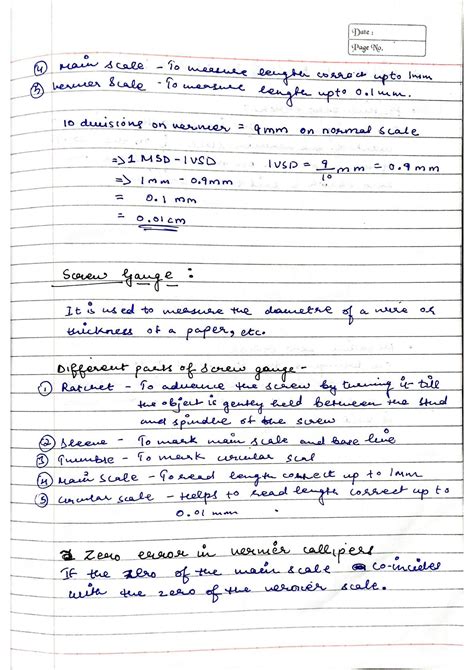 Date :
Page No.
④ Main Scale - To measure length correct upto 1mm
⑤ Vernier Scale - To measure length upto 0.1mm.
10 divisions on vernier = 9mm on normal scale
=> 1 MSD - 1VSD 1VSD = 9/10 mm = 0.9mm
=> 1mm - 0.9mm
= 0.1 mm
= 0.01cm
Screw Gauge :
It is used to measure the diametre of a wire or
thickness of a paper, etc.
Different parts of screw gauge -
① Ratchet - To advance the screw by turning it till
the object is gently held between the stud
and spindle of the screw
② Sleeve - To mark main scale and base line
③ Thimble - To mark circular scal
④ Main scale - To read length correct up to 1mm
⑤ Circular scale - Helps to read length correct up to
0.01 mm
Zero error in vernier callipers
If the zero of the main scale co-incides
with the zero of the vernier scale.